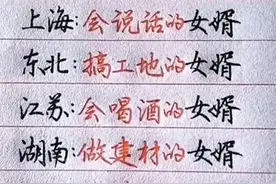 上海:会说话的女婿
东北:搞工地的女婿
江苏:会喝酒的女婿
湖南:做建材的女婿